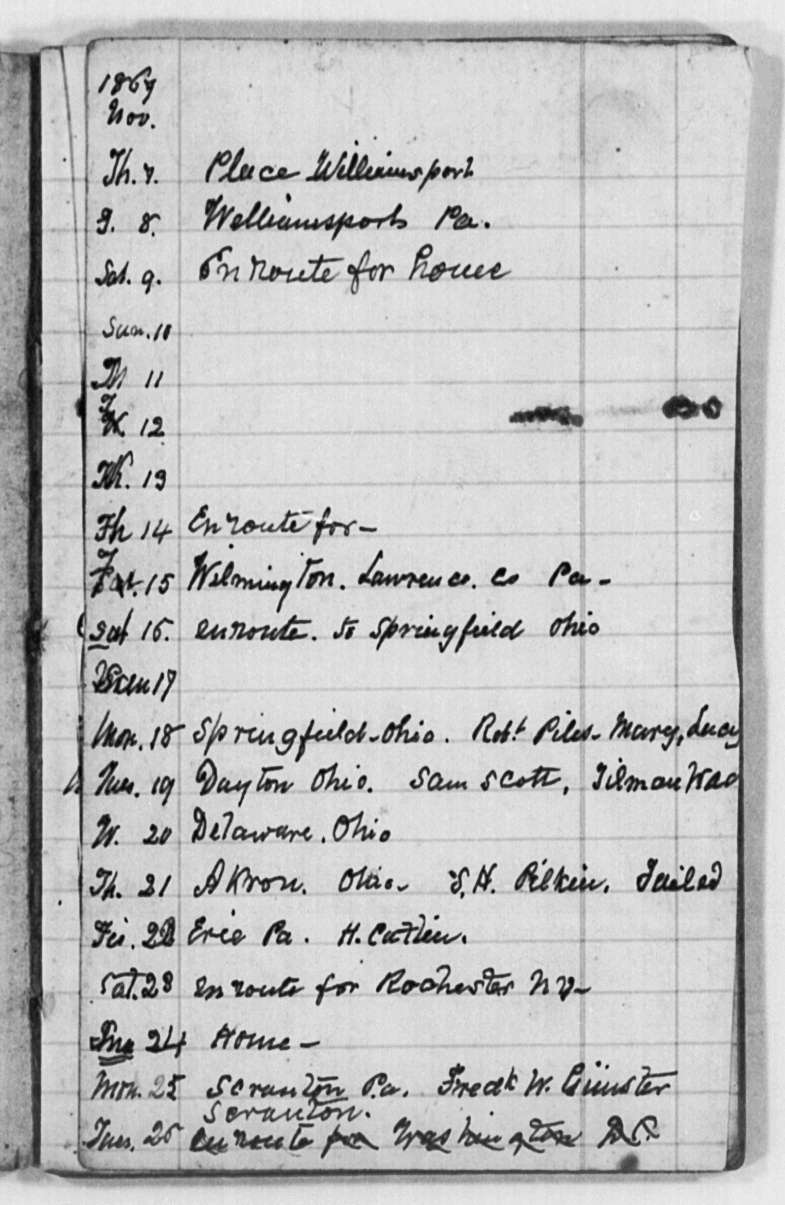 1867
Nov.
Th. 7. Place Williamsport
F. 8. Williamsport Pa.
Sat. 9. En route for home
Sun. 10
M 11
T 12
W. 13
Th 14 En route for—
F 15 Wilmington. Lawrence. Co Pa—
Sat 16. enroute. to Springfield Ohio
Sun 17
Mon. 18 Springfield—Ohio. Robt Piles— Mary, Lucy
Tues. 19 Dayton Ohio. Sam Scott, Tilman
W. 20 Delaware. Ohio
Th. 21 Akron. Ohio— S. H. Pitkin. Failed
Fri. 22 Erie Pa. H. Catlin.
Sat. 23 en route for Rochester NY—
24 Home—
Mon. 25 Scranton Pa. Fredk W. Günster
Scranton.
Tues. 26 en route for Washington D.C.